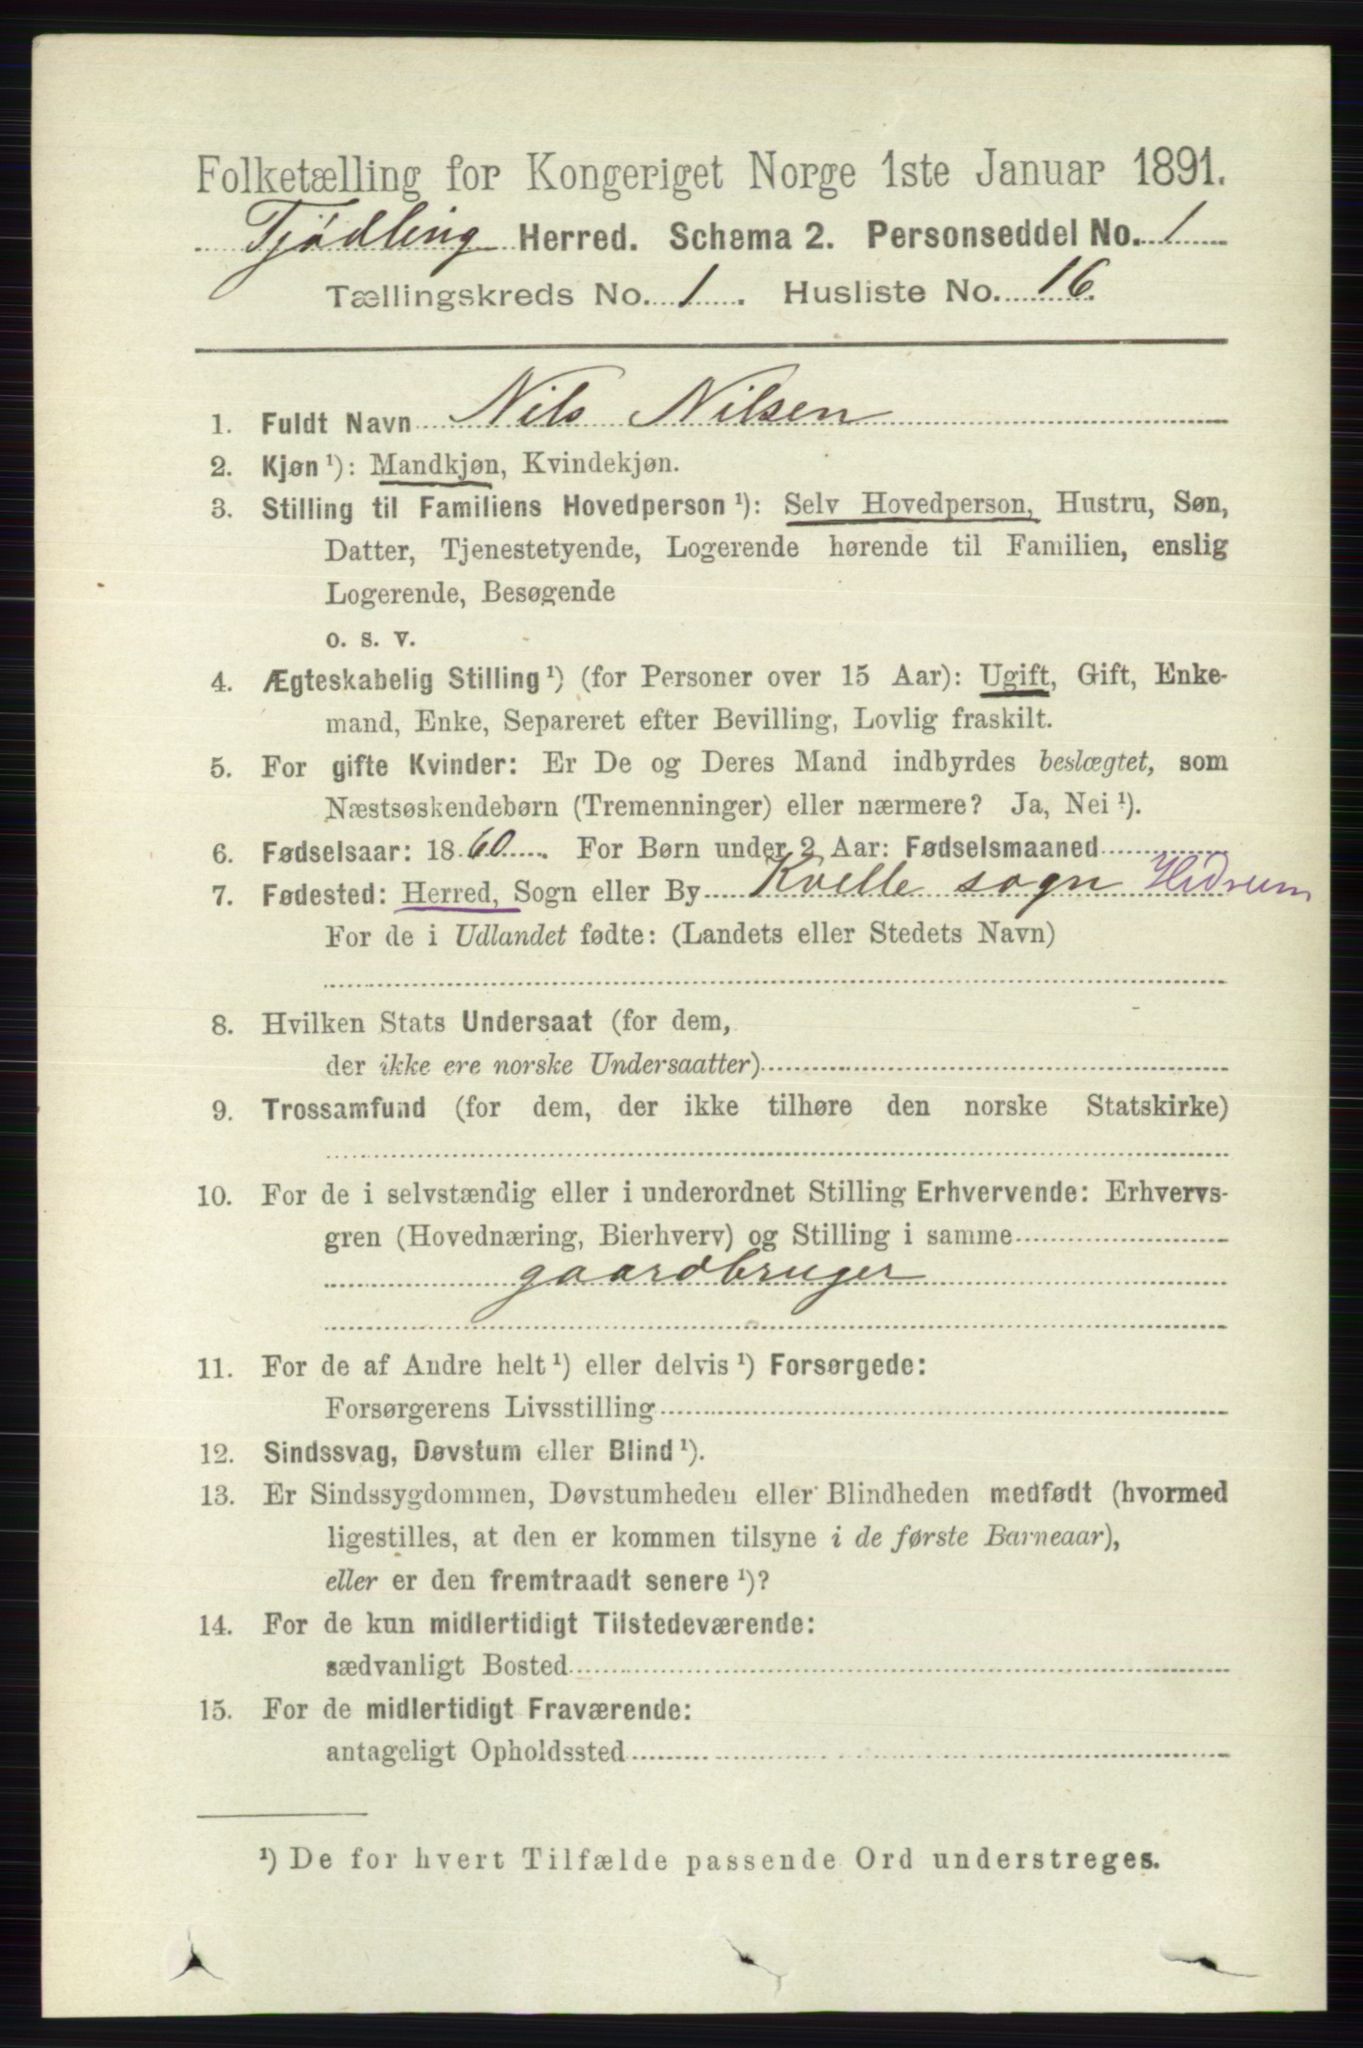 Folketælling for Kongeriget Norge 1ste Januar 1891.
Tjødling Herred. Schema 2. Personseddel No. 1
Tællingskreds No. 1. Husliste No. 16.
1. Fuldt Navn Nils Nilsen
2. Kjøn ¹): Mandkjøn, Kvindekjøn.
3. Stilling til Familiens Hovedperson ¹): Selv Hovedperson, Hustru, Søn,
Datter, Tjenestetyende, Logerende hørende til Familien, enslig
Logerende, Besøgende
o. s. v.
4. Ægteskabelig Stilling ¹) (for Personer over 15 Aar): Ugift, Gift, Enke-
mand, Enke, Separeret efter Bevilling, Lovlig fraskilt.
5. For gifte Kvinder: Er De og Deres Mand indbyrdes beslægtet, som
Næstsøskendebørn (Tremenninger) eller nærmere? Ja, Nei ¹).
6. Fødselsaar: 1860. For Børn under 2 Aar: Fødselsmaaned
7. Fødested: Herred, Sogn eller By Kvelle sogn Hidrum
For de i Udlandet fødte: (Landets eller Stedets Navn)
8. Hvilken Stats Undersaat (for dem,
der ikke ere norske Undersaatter)
9. Trossamfund (for dem, der ikke tilhøre den norske Statskirke)
10. For de i selvstændig eller i underordnet Stilling Erhvervende: Erhvervs-
gren (Hovednæring, Bierhverv) og Stilling i samme
gaardbruger
11. For de af Andre helt ¹) eller delvis ¹) Forsørgede:
Forsørgerens Livsstilling
12. Sindssvag, Døvstum eller Blind ¹).
13. Er Sindssygdommen, Døvstumheden eller Blindheden medfødt (hvormed
ligestilles, at den er kommen tilsyne i de første Barneaar),
eller er den fremtraadt senere ¹)?
14. For de kun midlertidigt Tilstedeværende:
sædvanligt Bosted
15. For de midlertidigt Fraværende:
antageligt Opholdssted
¹) De for hvert Tilfælde passende Ord understreges.